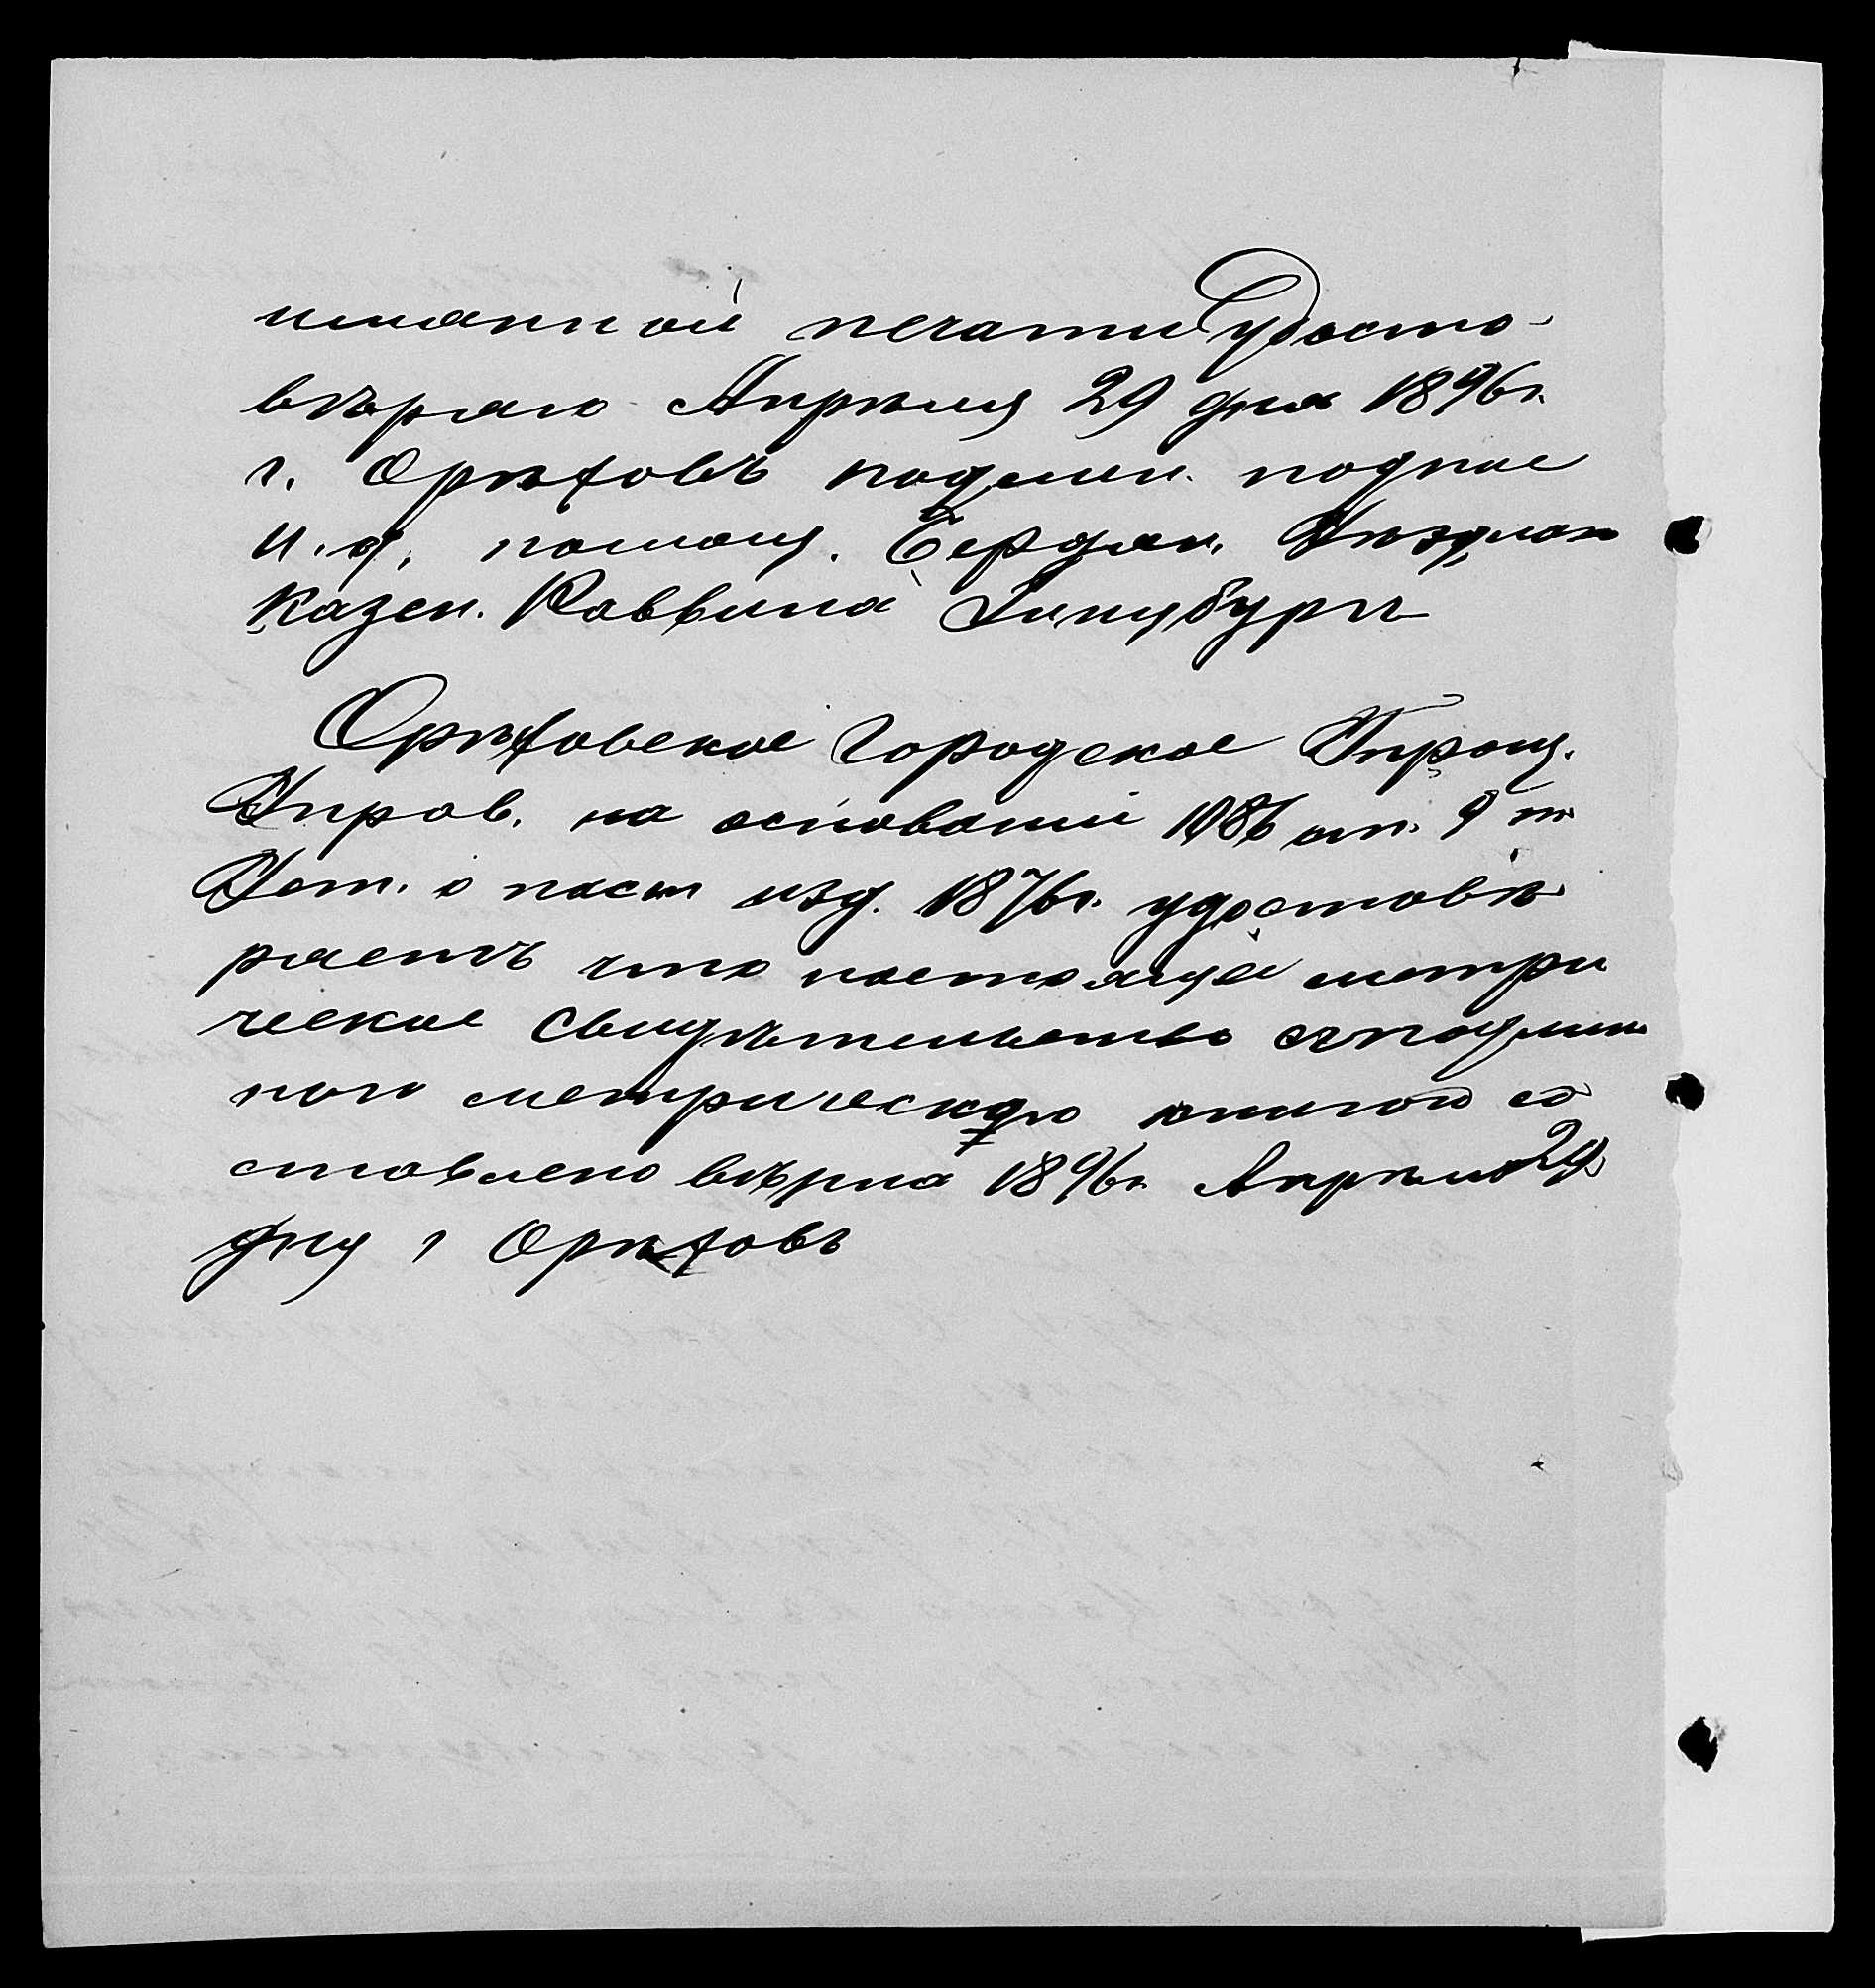 именной печати Удосто-
вѣряю Апрѣля 29 дня 1896 г.
г. Орѣховъ подлин. подпис
И. д. помощ. Бердян. Уѣзднаго
Казен. Раввина Гинцбургъ
Орѣховское Городское Упрощ.
Управ. на основаніи 1086 ст. 9 т
Уст. о паст изд. 1876 г. удостовѣ
ряетъ что настоящее метри
ческое свидѣтельство съ подлин
ною метрическою книгою со
ставлено вѣрна 1896 г. Апрѣля 29
дня г Орѣховъ